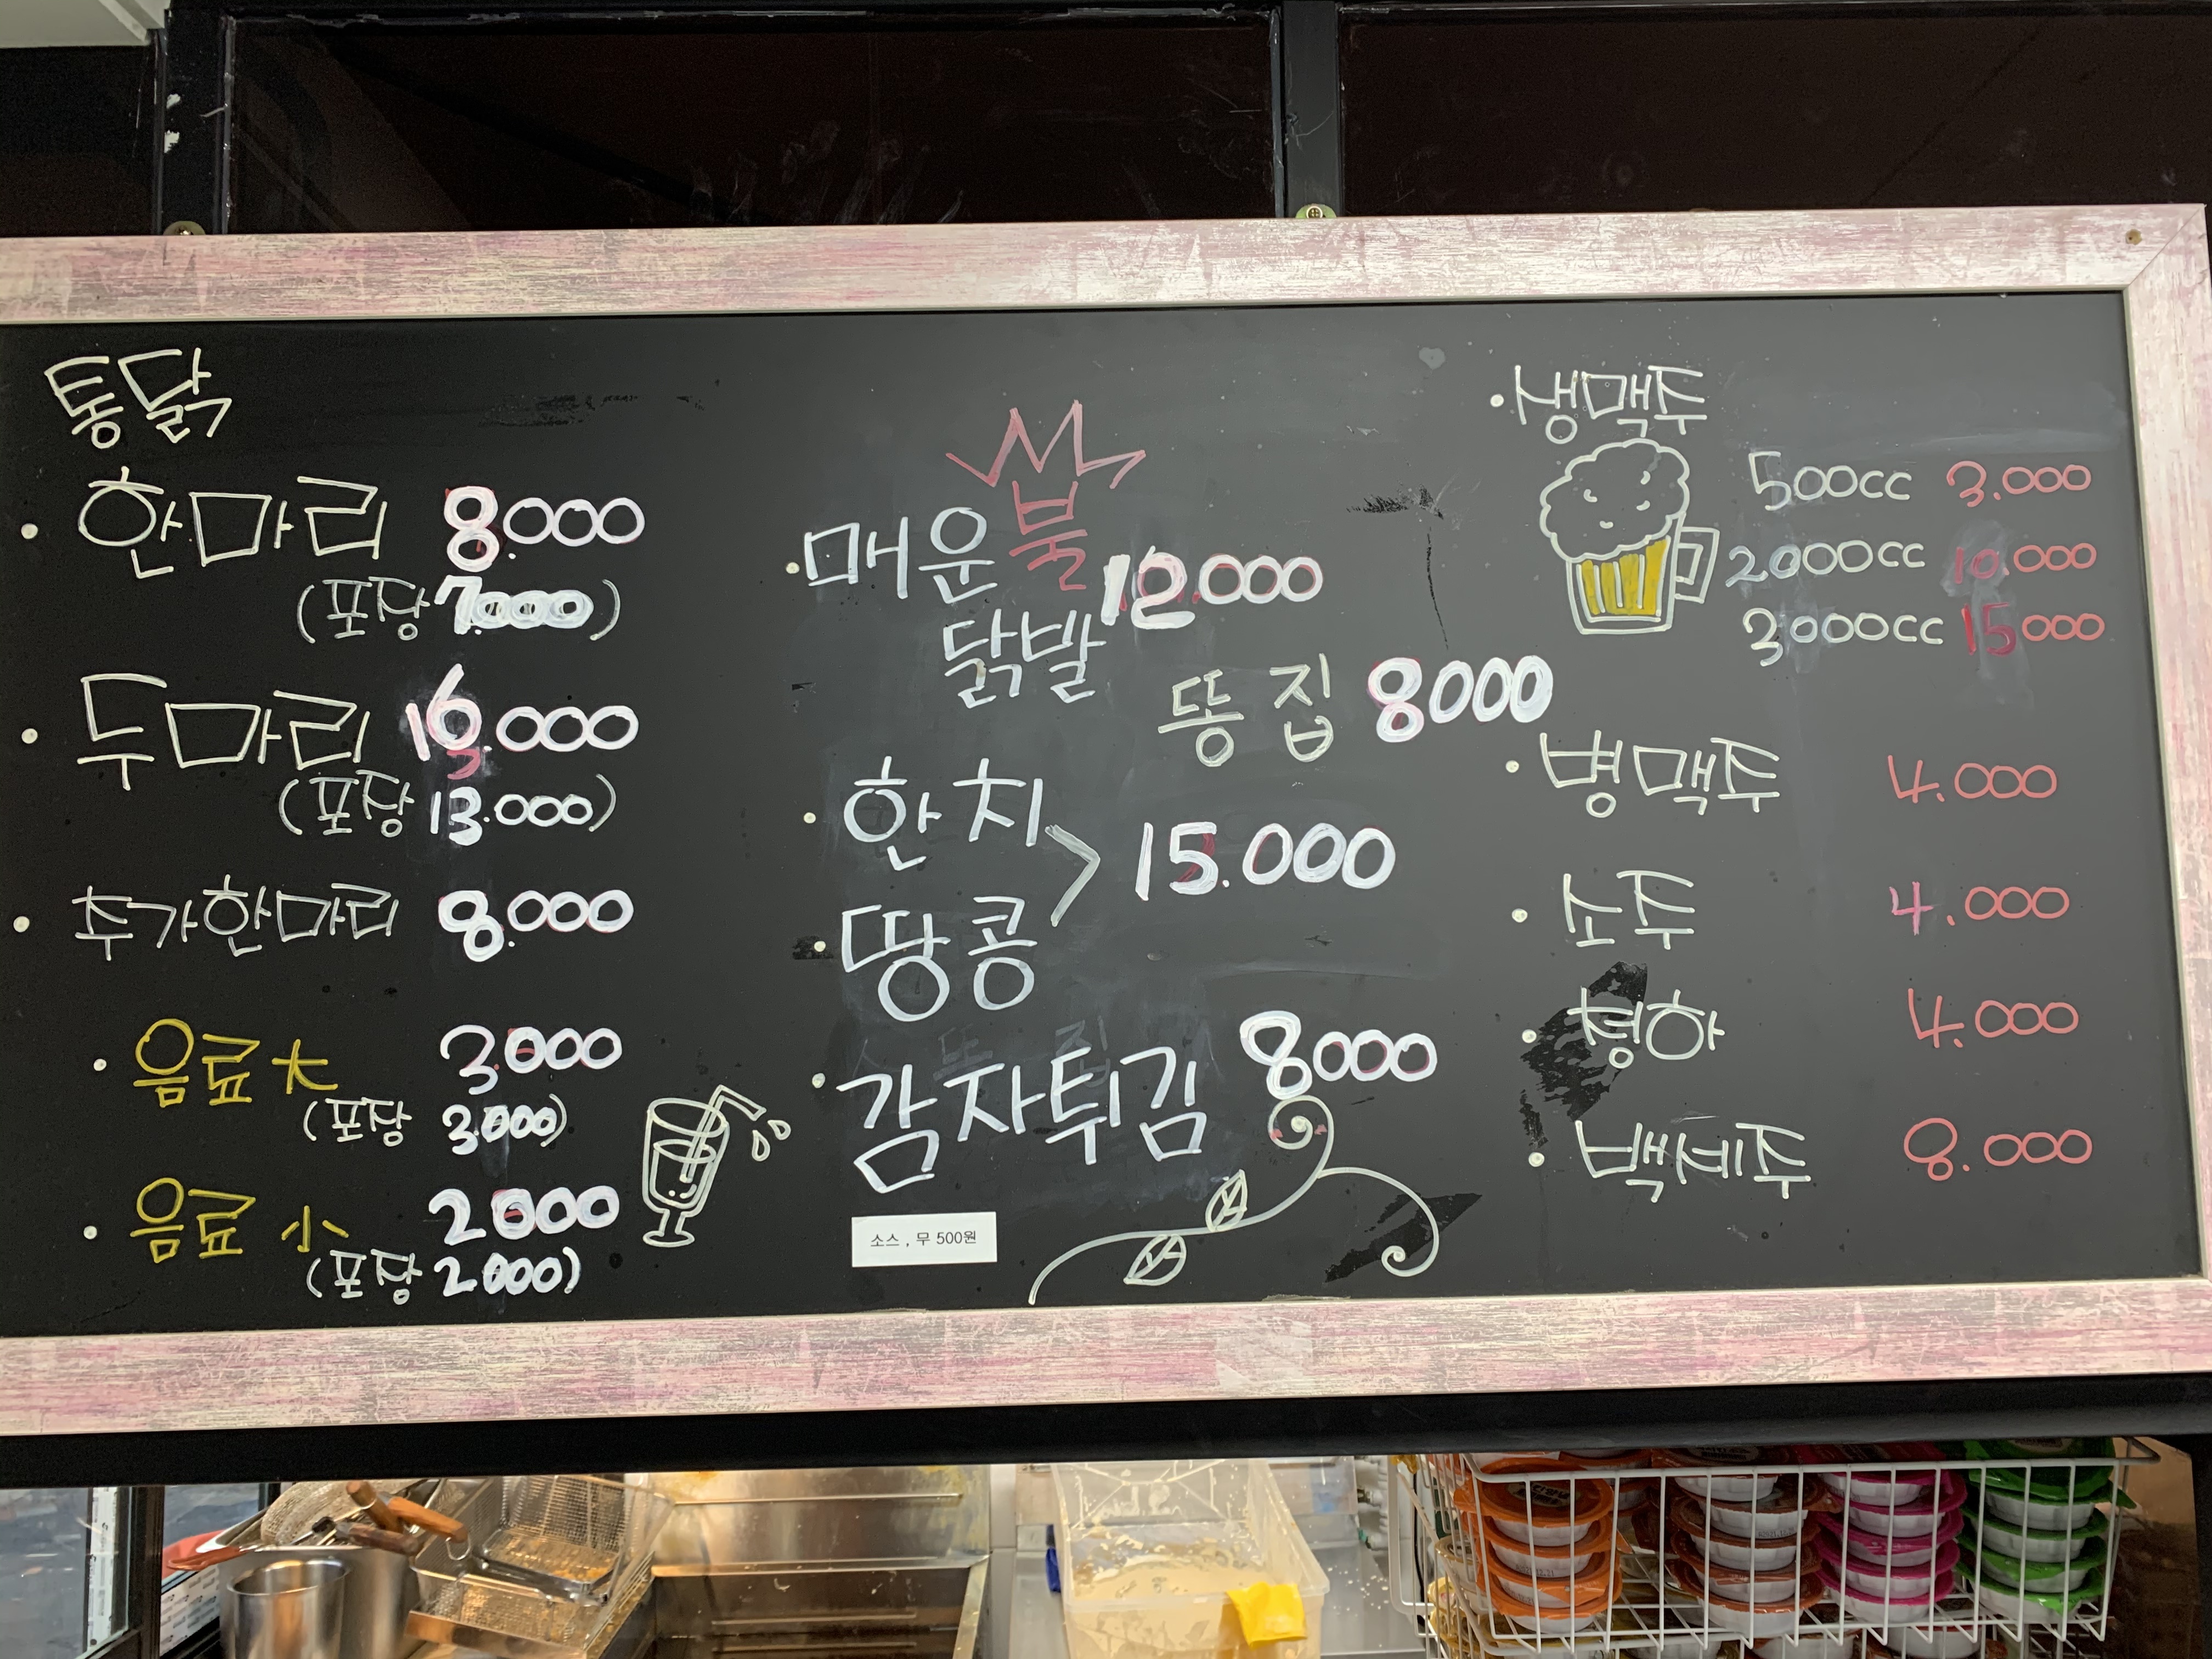 통닭
· 한마리 8.000
(포장 7.000)
· 두마리 16.000
(포장 13.000)
· 추가한마리 8.000
· 음료 大 3.000
(포장 3.000)
· 음료 小 2000
(포장 2.000)
· 매운 불 12.000
닭발
똥집 8000
· 한치 > 15.000
· 땅콩
· 감자튀김 8000
소스 , 무 500원
· 생맥주
500cc 3.000
2000cc 10.000
3000cc 15000
· 병맥주 4.000
· 소주 4.000
· 청하 4.000
· 백세주 8.000